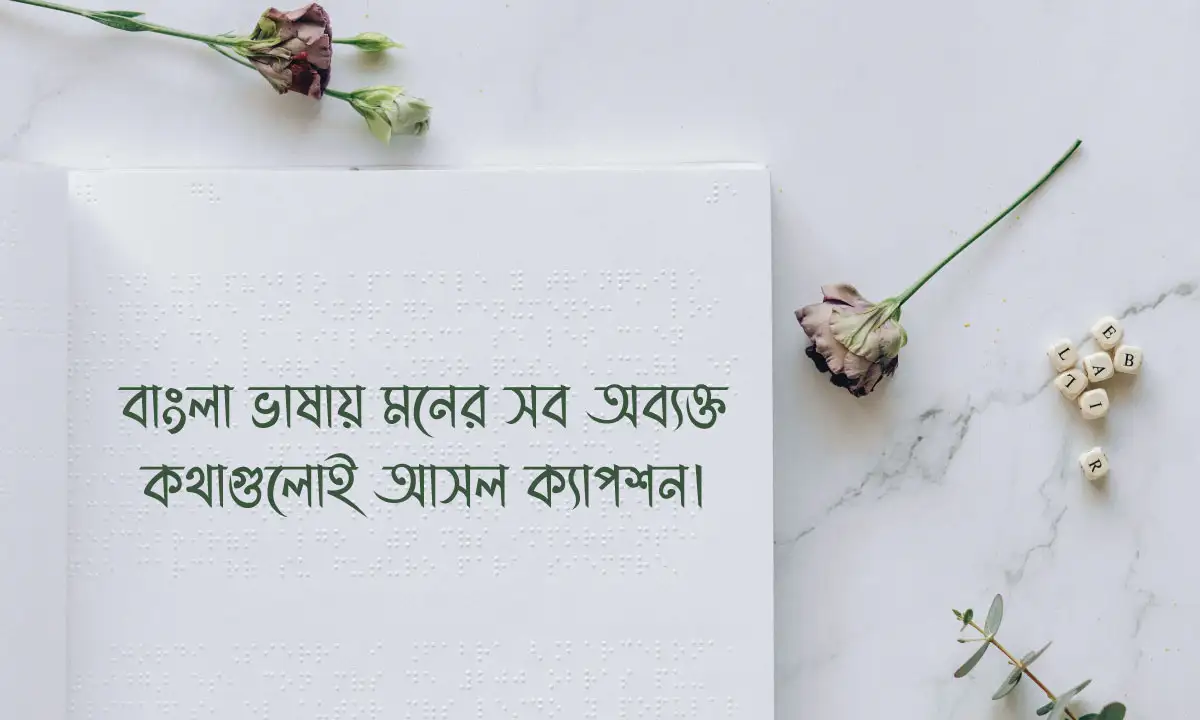 বাংলা ভাষায় মনের সব অব্যক্ত
কথাগুলোই আসল ক্যাপশন।
E
L
B
A
L
I
R